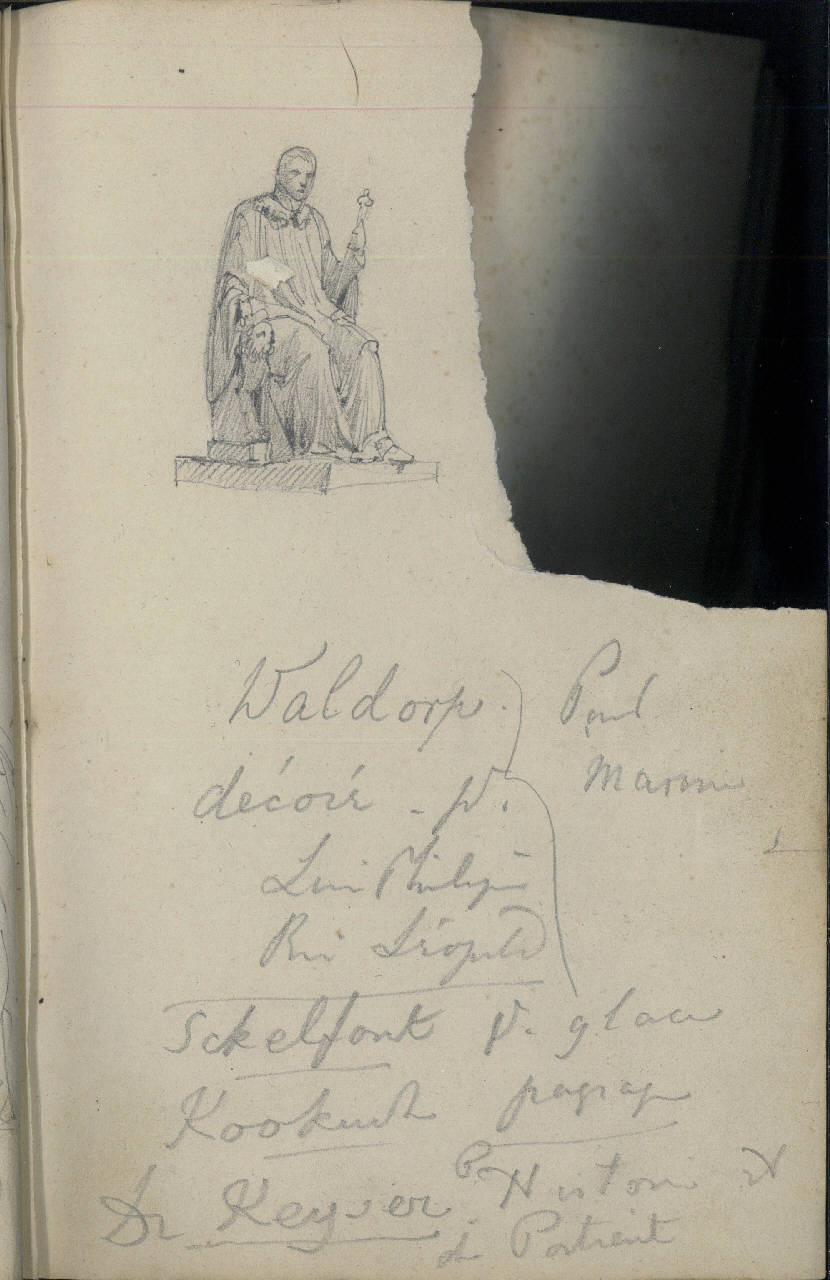 Waldorp. Paul
décoré - p. Marine
Louis Philippe
Roi Léopold
Sckelfout p. glace
Kookuck paysage
De Keyser P. Histoire et
de Portrait